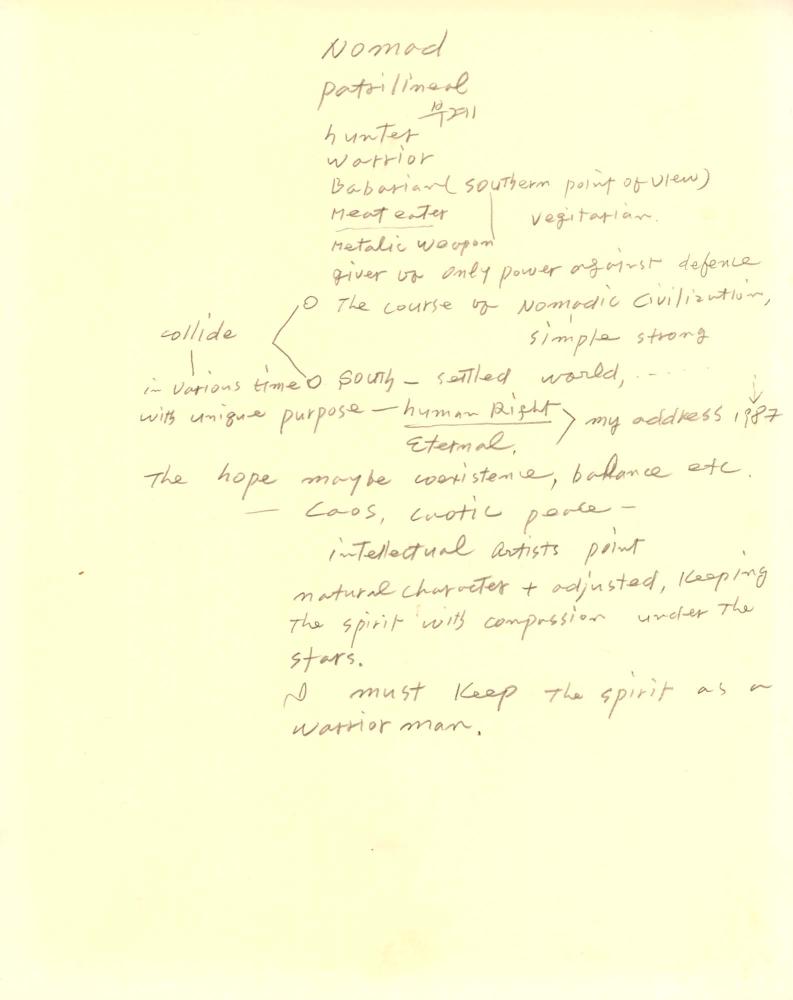 Nomad
patrilineal
부계
hunter
warrior
Babarian (southern point of view)
Meat eater | vegitarian.
Metalic weapon
giver of only power against defence
o The course of Nomadic Civilization,
collide simple strong
in various time o South – settled world, - - - - -
with unique purpose – human Right > my address 1987
Eternal.
The hope maybe coexistence, balance etc.
— Caos, caotic peace –
intellectual artists point
natural character + adjusted, Keeping
the spirit with compassion under the
stars.
must Keep the spirit as a
warrior man.